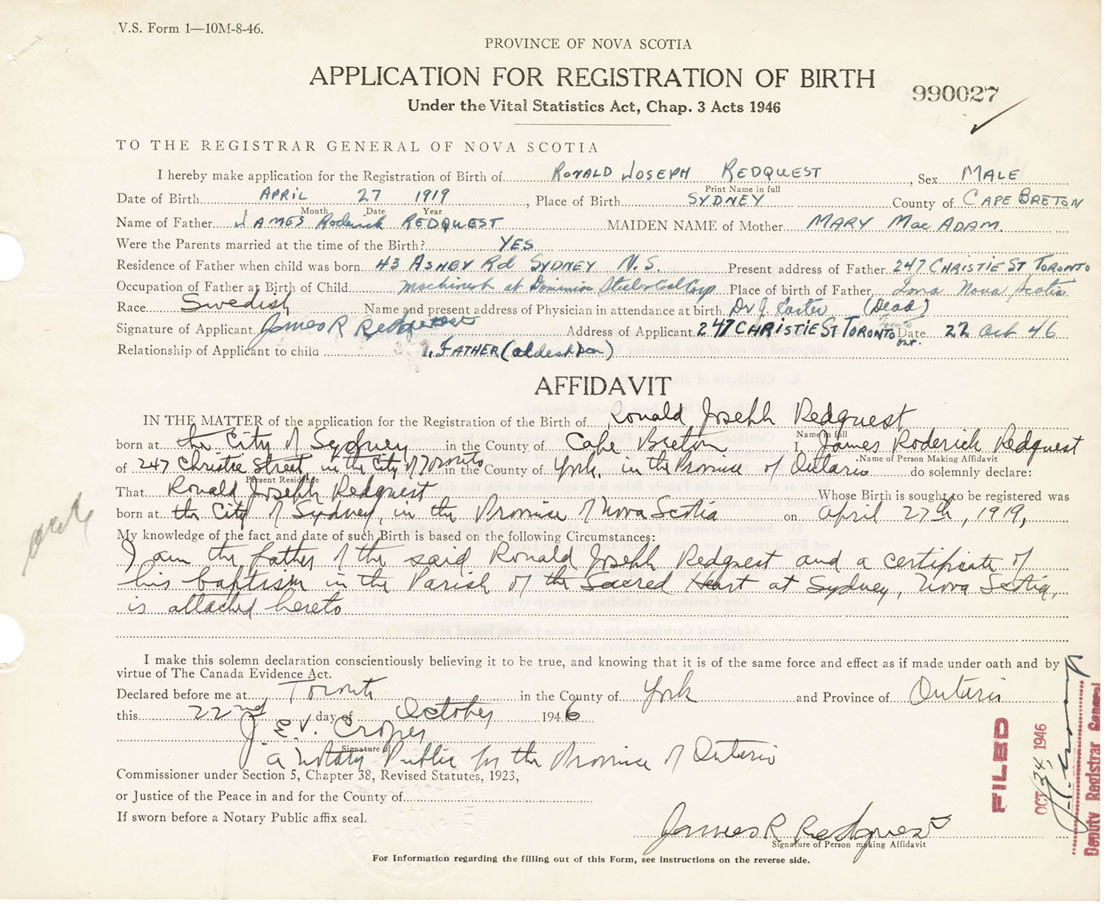 V.S. Form 1—10M-8-46.
PROVINCE OF NOVA SCOTIA
APPLICATION FOR REGISTRATION OF BIRTH
990027
Under the Vital Statistics Act, Chap. 3 Acts 1946
TO THE REGISTRAR GENERAL OF NOVA SCOTIA
I hereby make application for the Registration of Birth of RONALD JOSEPH REDQUEST, Sex MALE
Print Name in full
Date of Birth APRIL 27 1919, Place of Birth SYDNEY County of CAPE BRETON
Month Date Year
Name of Father JAMES Roderick REDQUEST MAIDEN NAME of Mother MARY Mac ADAM
Were the Parents married at the time of the Birth? YES
Residence of Father when child was born 43 ASHBY Rd SYDNEY N.S. Present address of Father 247 CHRISTIE ST TORONTO
Occupation of Father at Birth of Child Machinist at Dominion Steel & Coal Corp Place of birth of Father Iona Nova Scotia
Race Swedish Name and present address of Physician in attendance at birth Dr J. (Dead)
Signature of Applicant James R Redquest Address of Applicant 247 CHRISTIE ST TORONTO Ont. Date 22 Oct 46
Relationship of Applicant to child FATHER (oldest son)
AFFIDAVIT
IN THE MATTER of the application for the Registration of Birth of Ronald Joseph Redquest
Name in full
born at the City of Sydney in the County of Cape Breton I, James Roderick Redquest
Name of Person Making Affidavit
of 247 Christie Street, in the City of Toronto in the County of York, in the Province of Ontario do solemnly declare:
Present Residence
That Ronald Joseph Redquest Whose Birth is sought to be registered was
born at the City of Sydney, in the Province of Nova Scotia on April 27th, 1919,
My knowledge of the fact and date of such Birth is based on the following Circumstances:
I am the father of the said Ronald Joseph Redquest and a certificate of
his baptism in the Parish of the Sacred Heart at Sydney, Nova Scotia,
is attached hereto
I make this solemn declaration conscientiously believing it to be true, and knowing that it is of the same force and effect as if made under oath and by
virtue of The Canada Evidence Act.
Declared before me at Toronto in the County of York and Province of Ontario
this 22nd day of October 1946
J. E. V.
Signature of
a Notary Public for the Province of Ontario
Commissioner under Section 5, Chapter 38, Revised Statutes, 1923,
or Justice of the Peace in and for the County of
If sworn before a Notary Public affix seal.
James R Redquest
Signature of Person making Affidavit
For Information regarding the filling out of this Form, see instructions on the reverse side.
FILED
OCT 24 1946
Deputy Registrar General